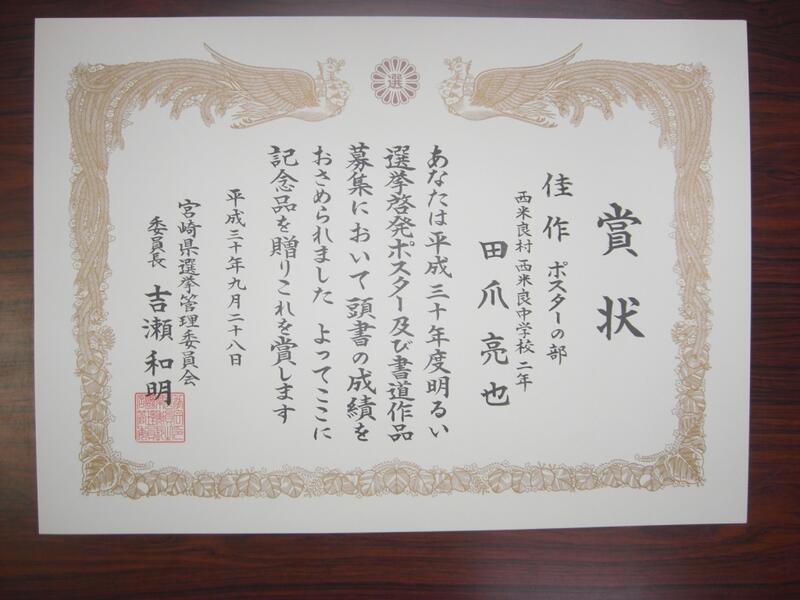 選
賞状
佳作 ポスターの部
西米良村 西米良中学校 二年
田爪亮也
あなたは平成三十年度明るい
選挙啓発ポスター及び書道作品
募集において頭書の成績を
おさめられました よってここに
記念品を贈りこれを賞します
平成三十年九月二十八日
宮崎県選挙管理委員会
委員長 吉瀬和明